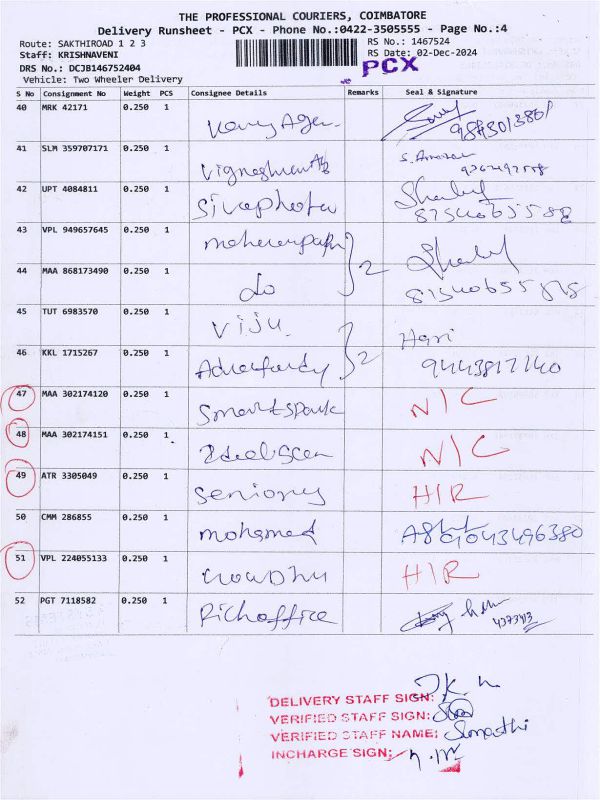 THE PROFESSIONAL COURIERS, COIMBATORE
Delivery Runsheet - PCX - Phone No.:0422-3505555 - Page No.:4
Route: SAKTHIROAD 1 2 3
RS No.: 1467524
Staff: KRISHNAVENI
RS Date: 02-Dec-2024
DRS No.: DCJB146752404
PCX
Vehicle: Two Wheeler Delivery
S No Consignment No Weight PCS Consignee Details Remarks Seal & Signature
40 MRK 42171 0.250 1
41 SLM 359707171 0.250 1
42 UPT 4084811 0.250 1 Sivaphoto
8754065588
43 VPL 949657645 0.250 1 2
44 MAA 868173490 0.250 1 do
45 TUT 6983570 0.250 1 Viju. 2 Hari
46 KKL 1715267 0.250 1
9443817140
47 MAA 302174120 0.250 1 Smartspark N/C
48 MAA 302174151 0.250 1 N/C
49 ATR 3305049 0.250 1 Seniorys H/R
50 CMM 286855 0.250 1 mohamed
51 VPL 224055133 0.250 1 H/R
52 PGT 7118582 0.250 1 Richoffice
DELIVERY STAFF SIGN:
VERIFIED STAFF SIGN:
VERIFIED STAFF NAME: Sumathi
INCHARGE SIGN: